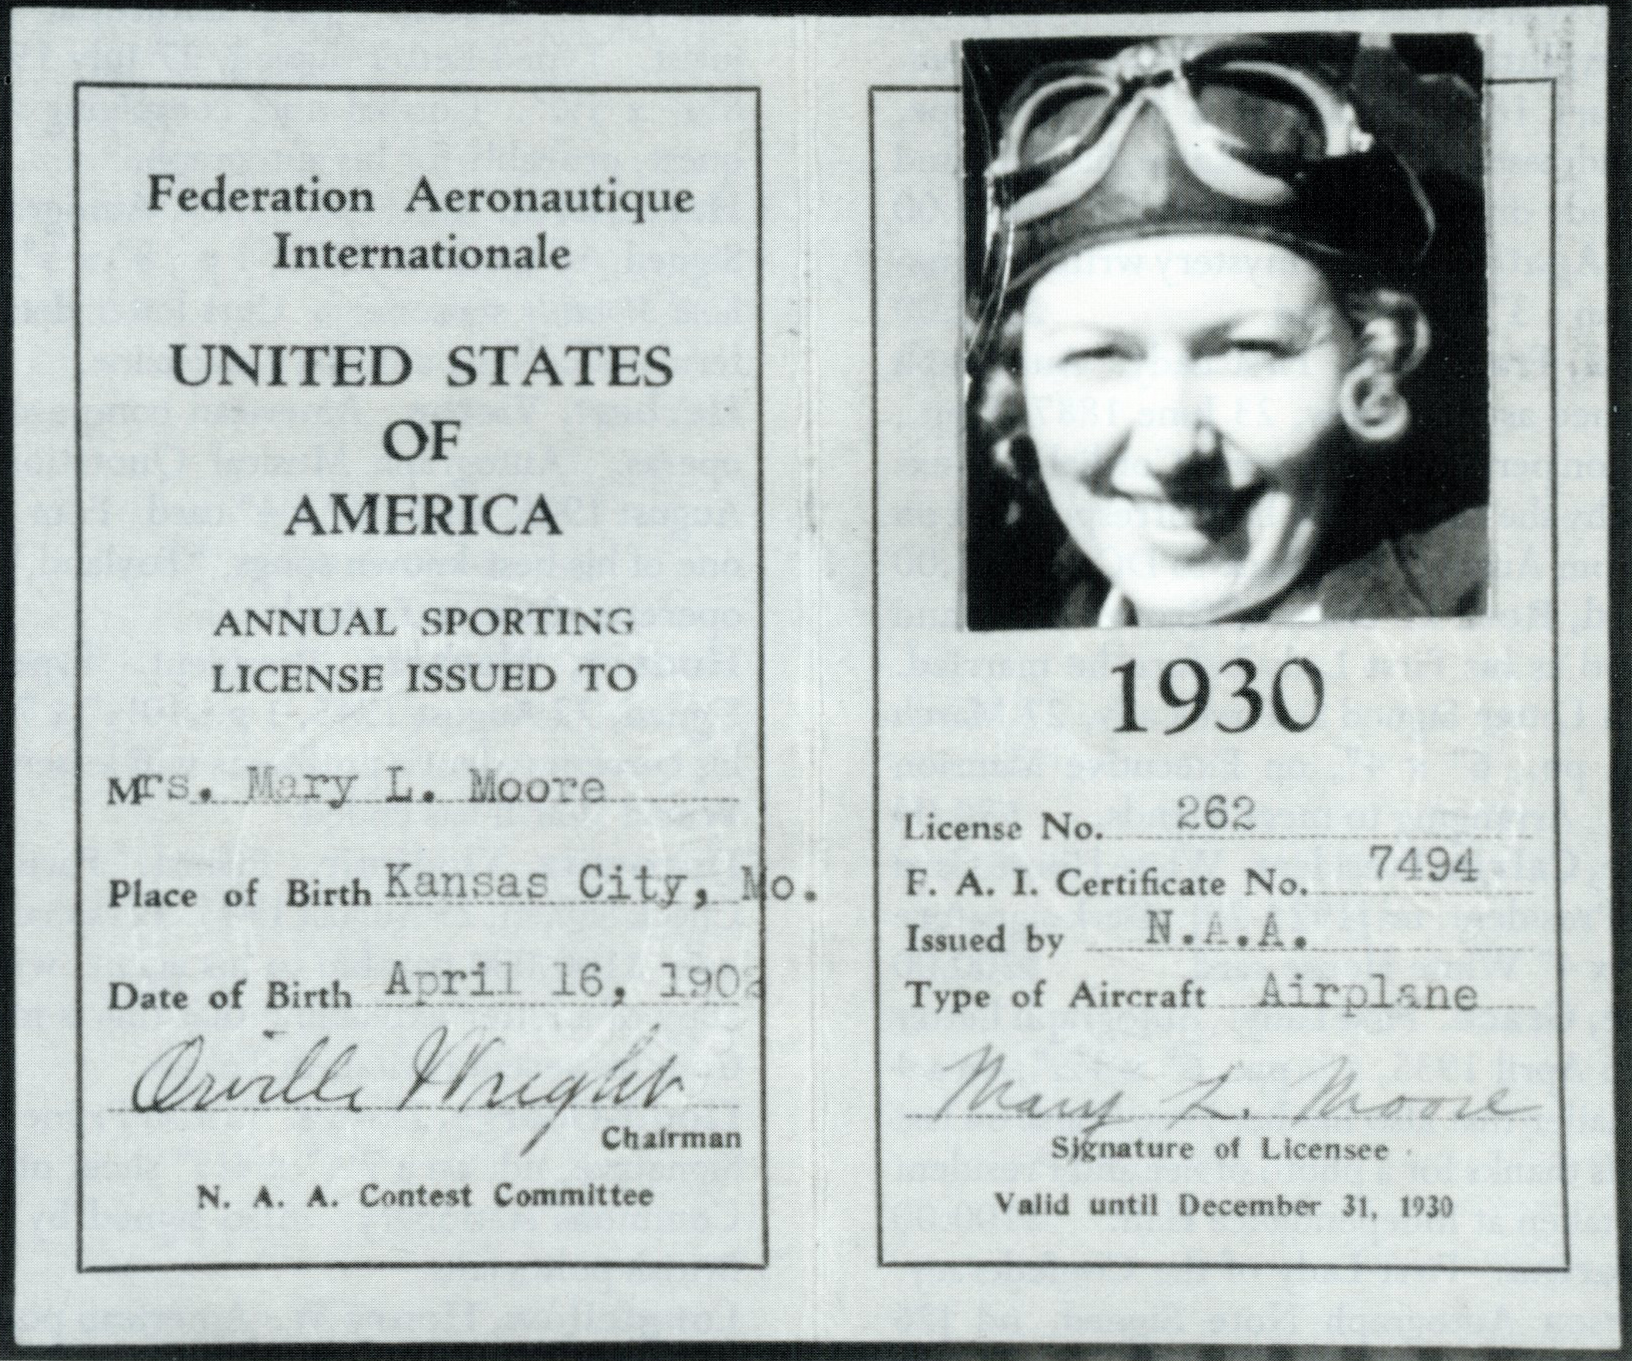 Federation Aeronautique
Internationale
UNITED STATES
OF
AMERICA
ANNUAL SPORTING
LICENSE ISSUED TO
Mrs. Mary L. Moore
Place of Birth Kansas City, Mo.
Date of Birth April 16, 1902
Orville Wright
Chairman
N. A. A. Contest Committee
1930
License No. 262
F. A. I. Certificate No. 7494
Issued by N.A.A.
Type of Aircraft Airplane
Mary L. Moore
Signature of Licensee
Valid until December 31, 1930